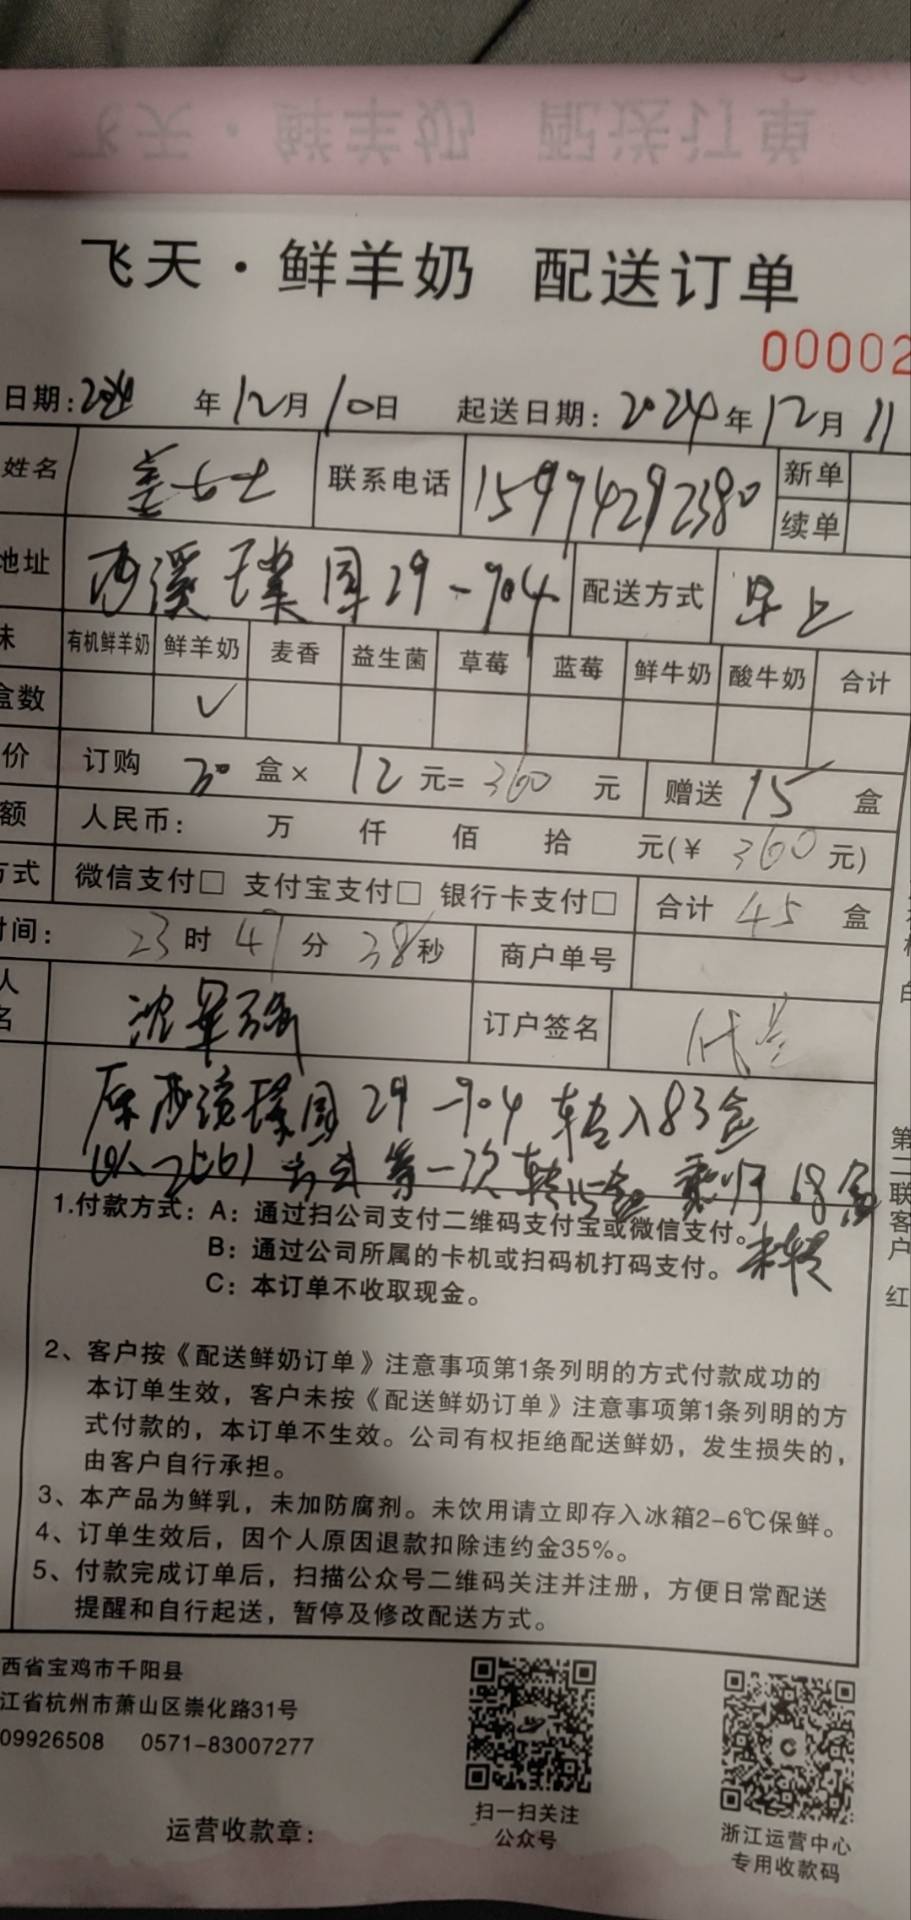 飞天·鲜羊奶 配送订单
飞天·鲜羊奶 配送订单
00002
日期: 年12月10日 起送日期: 2024年12月11
姓名 姜女士 联系电话 15974292380 新单
续单
地址 西溪璞园29-904 配送方式 早上
味 有机鲜羊奶 鲜羊奶 麦香 益生菌 草莓 蓝莓 鲜牛奶 酸牛奶 合计
盒数 ✓
价 订购 30 盒× 12 元= 360 元 赠送 15 盒
额 人民币: 万 仟 佰 拾 元(¥ 360 元)
方式 微信支付□ 支付宝支付□ 银行卡支付□ 合计 45 盒
时间: 23时47分38秒 商户单号
人
名 沈 强 订户签名 代签
原西溪璞园29-904 转入83盒
方式第一次转15盒 剩下68盒
未转
1.付款方式: A: 通过扫公司支付二维码支付宝或微信支付。
B: 通过公司所属的卡机或扫码机打码支付。
C: 本订单不收取现金。
2、客户按《配送鲜奶订单》注意事项第1条列明的方式付款成功的
本订单生效，客户未按《配送鲜奶订单》注意事项第1条列明的方
式付款的，本订单不生效。公司有权拒绝配送鲜奶，发生损失的，
由客户自行承担。
3、本产品为鲜乳，未加防腐剂。未饮用请立即存入冰箱2-6℃保鲜。
4、订单生效后，因个人原因退款扣除违约金35%。
5、付款完成订单后，扫描公众号二维码关注并注册，方便日常配送
提醒和自行起送，暂停及修改配送方式。
西省宝鸡市千阳县
江省杭州市萧山区崇化路31号
09926508 0571-83007277
扫一扫关注
公众号
浙江运营中心
专用收款码
运营收款章:
白
第二联客户
红